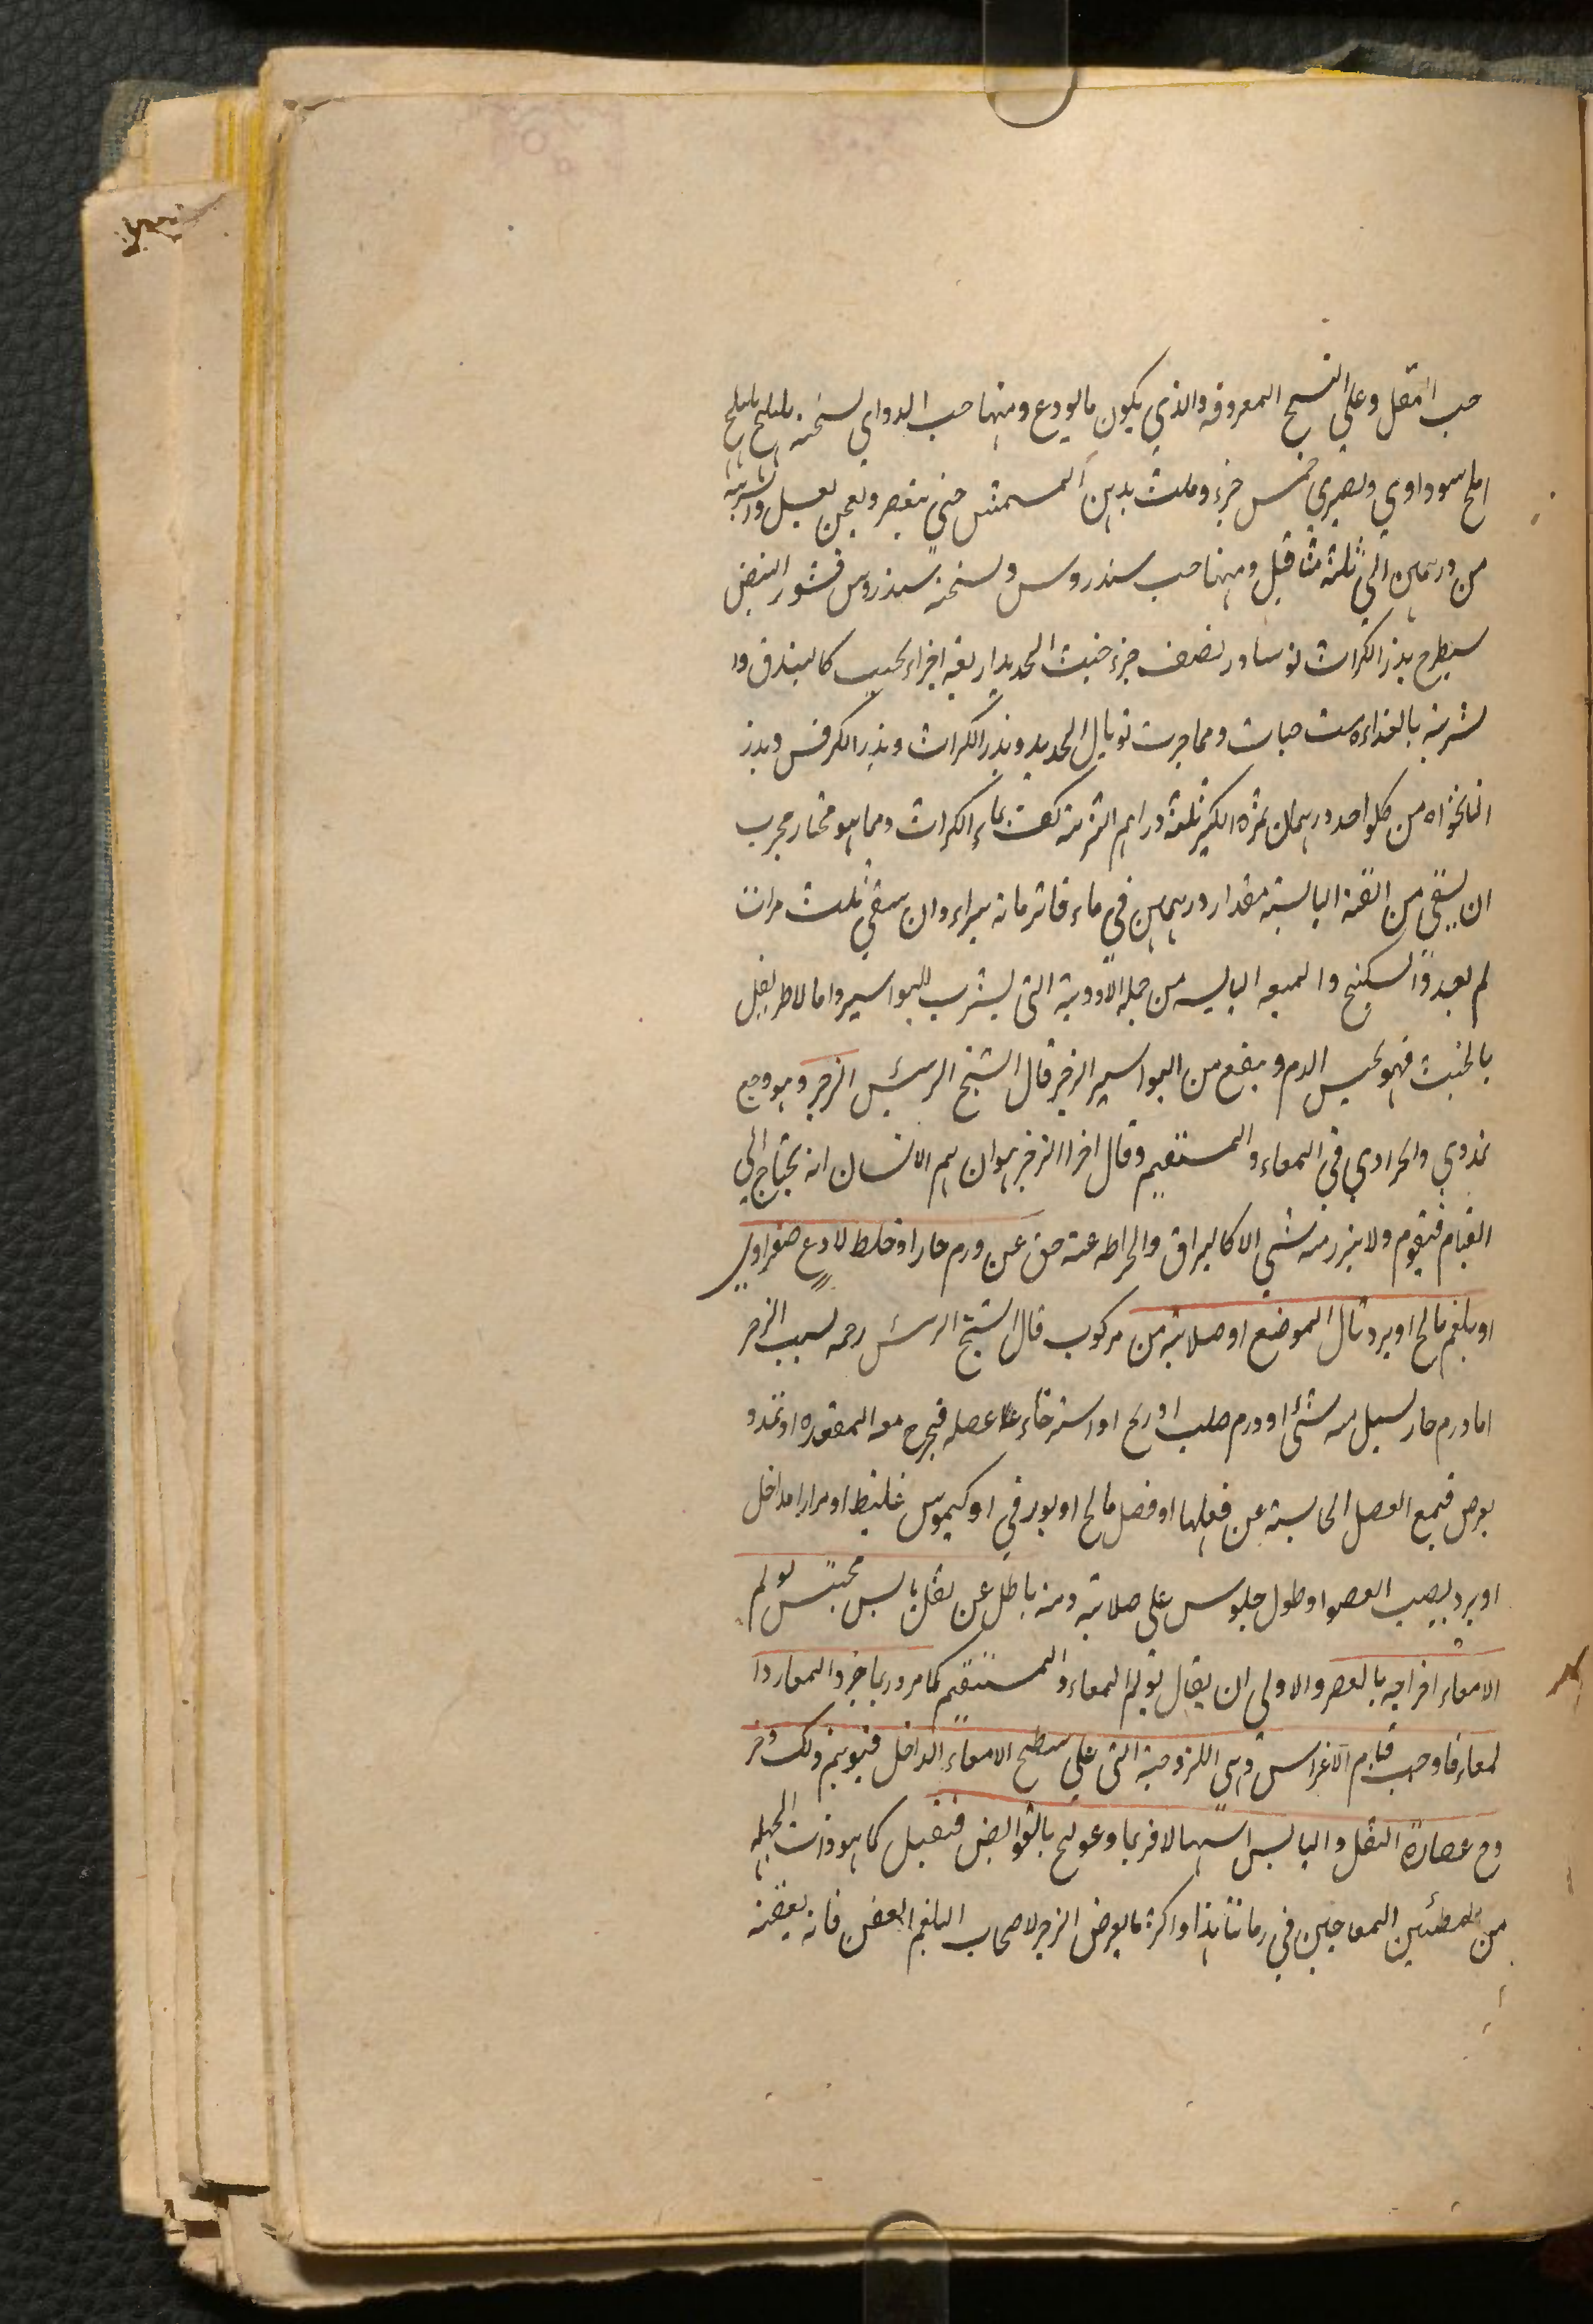 حب المقل وعلي النسخ المعروفه والذي يكون مالودع ومنها حب الدواي نسخته هليلج بليلج
املح سوداوي ونصيري خمس جزء وملت بدهن المسمش حتي يتعصر ونعجن بعسل والشربته
من درهمين الي ثلثة مثاقيل ومنها حب سندروس ونسخته سندروس قشور البيض
سيطرح بذر الكراث نوسادر نصف جزء خبث الحديد اربعة اجزاء يحبب كالبندق وا
لشربته بالغداء ست حبات ومما جربت توبال الحديد وبذر الكراث وبذر الكرفس وبذر
النانخواه من كلواحد درهمان ثمرة الكبر ثلثة دراهم الشربته كف بماء الكراث ومما هو مختار مجرب
ان يسقي من القنه اليابسته مقدار درهمين في ماء فاتر فانه يبراء وان سقي ثلث مرات
لم يعد والسكبنج والميعه اليابسه من جملة الادوية التي يشرب للبواسير واما لاطريفل
بالخبث فهو يحبس الدم وينفع من البواسير الزحير قال الشيخ الرئيس الزحير وهو وجع
تمددي وانجرادي في المعاء والمستقيم وقال اخر الزحير هو ان يهم الانسان انه يحتاج الي
القيام فيقوم ولا يبرز منه شي الا كالبزاق والخراطه عنه حق عن ورم حار او خلط لادع صفراوي
او بلغم مالح او برد نال الموضع او صلابته من مركوب قال الشيخ الرئيس رحمه لسبب الزحر
اما ورم حار لسيل منه شئ او ورم صلب او ريح او استرخاء عضله فيخرج معه المقعده او تمدد
يعرض فيمع العضل الحابسته عن فعلها او فضل مالح او بورقي او كيموس غليظ او مرار امداخل
او برد يصيب العضو او طول جلوس علي صلابته ومنه باطل عن ثقل يابس محتبس يولم
الامعاء اخراجه بالعصر والاولي ان يقال يولم المعاء والمستقيم كما مر وربما جرد المعا ردا
لمعاء فاوجب قيام الاغراس وهي اللزوجته التي علي سطح الامعاء الداخل فيوهم ذلك وخر
وج عصارة الثقل واليابس اسهالا فربما وعولج بالقوابض فيقبل كما هو ذات الجبله
من المعالجين في زماننا هذا واكثر ما يعرض الزحير لاصحاب البلغم العفن فانه بعضنه